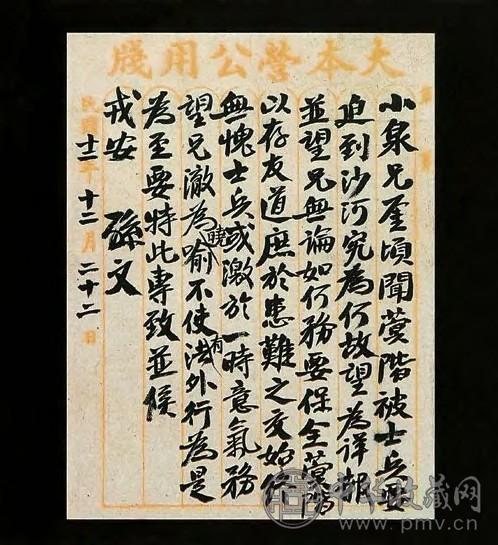 大本營公用牋
小泉兄鋻頃聞蓂階被士兵要
迫到沙河究為何故望為詳報
並望兄無論如何務要保全蓂階
以存友道庶於患難之交始終
無愧士兵或激於一時意氣務
望兄澈為曉喻不使有法外行為是
為至要特此專致並候
戎安 孫文
民國十二年十二月二十二日
中华收藏网
www.pmv.cn